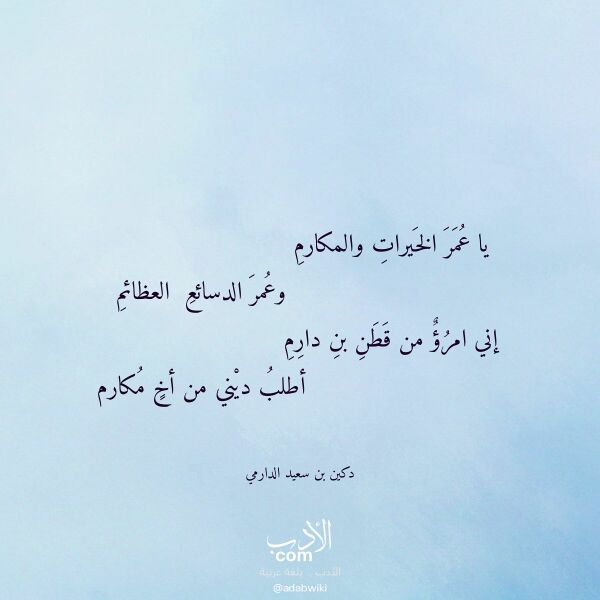 يا عُمَرَ الخَيراتِ والمكارمِ
وعُمرَ الدسائعِ العظائمِ
إني امرُؤٌ من قَطَنِ بنِ دارِمِ
أطلبُ ديْني من أخٍ مُكارم
دكين بن سعيد الدارمي
الأدب
com
الأدب .. بلغة عربية
@adabwiki